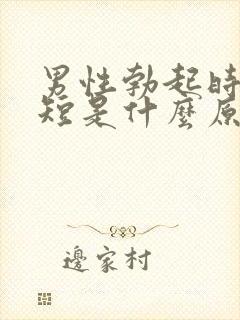 男性勃起時
短是什麼原
邊家村